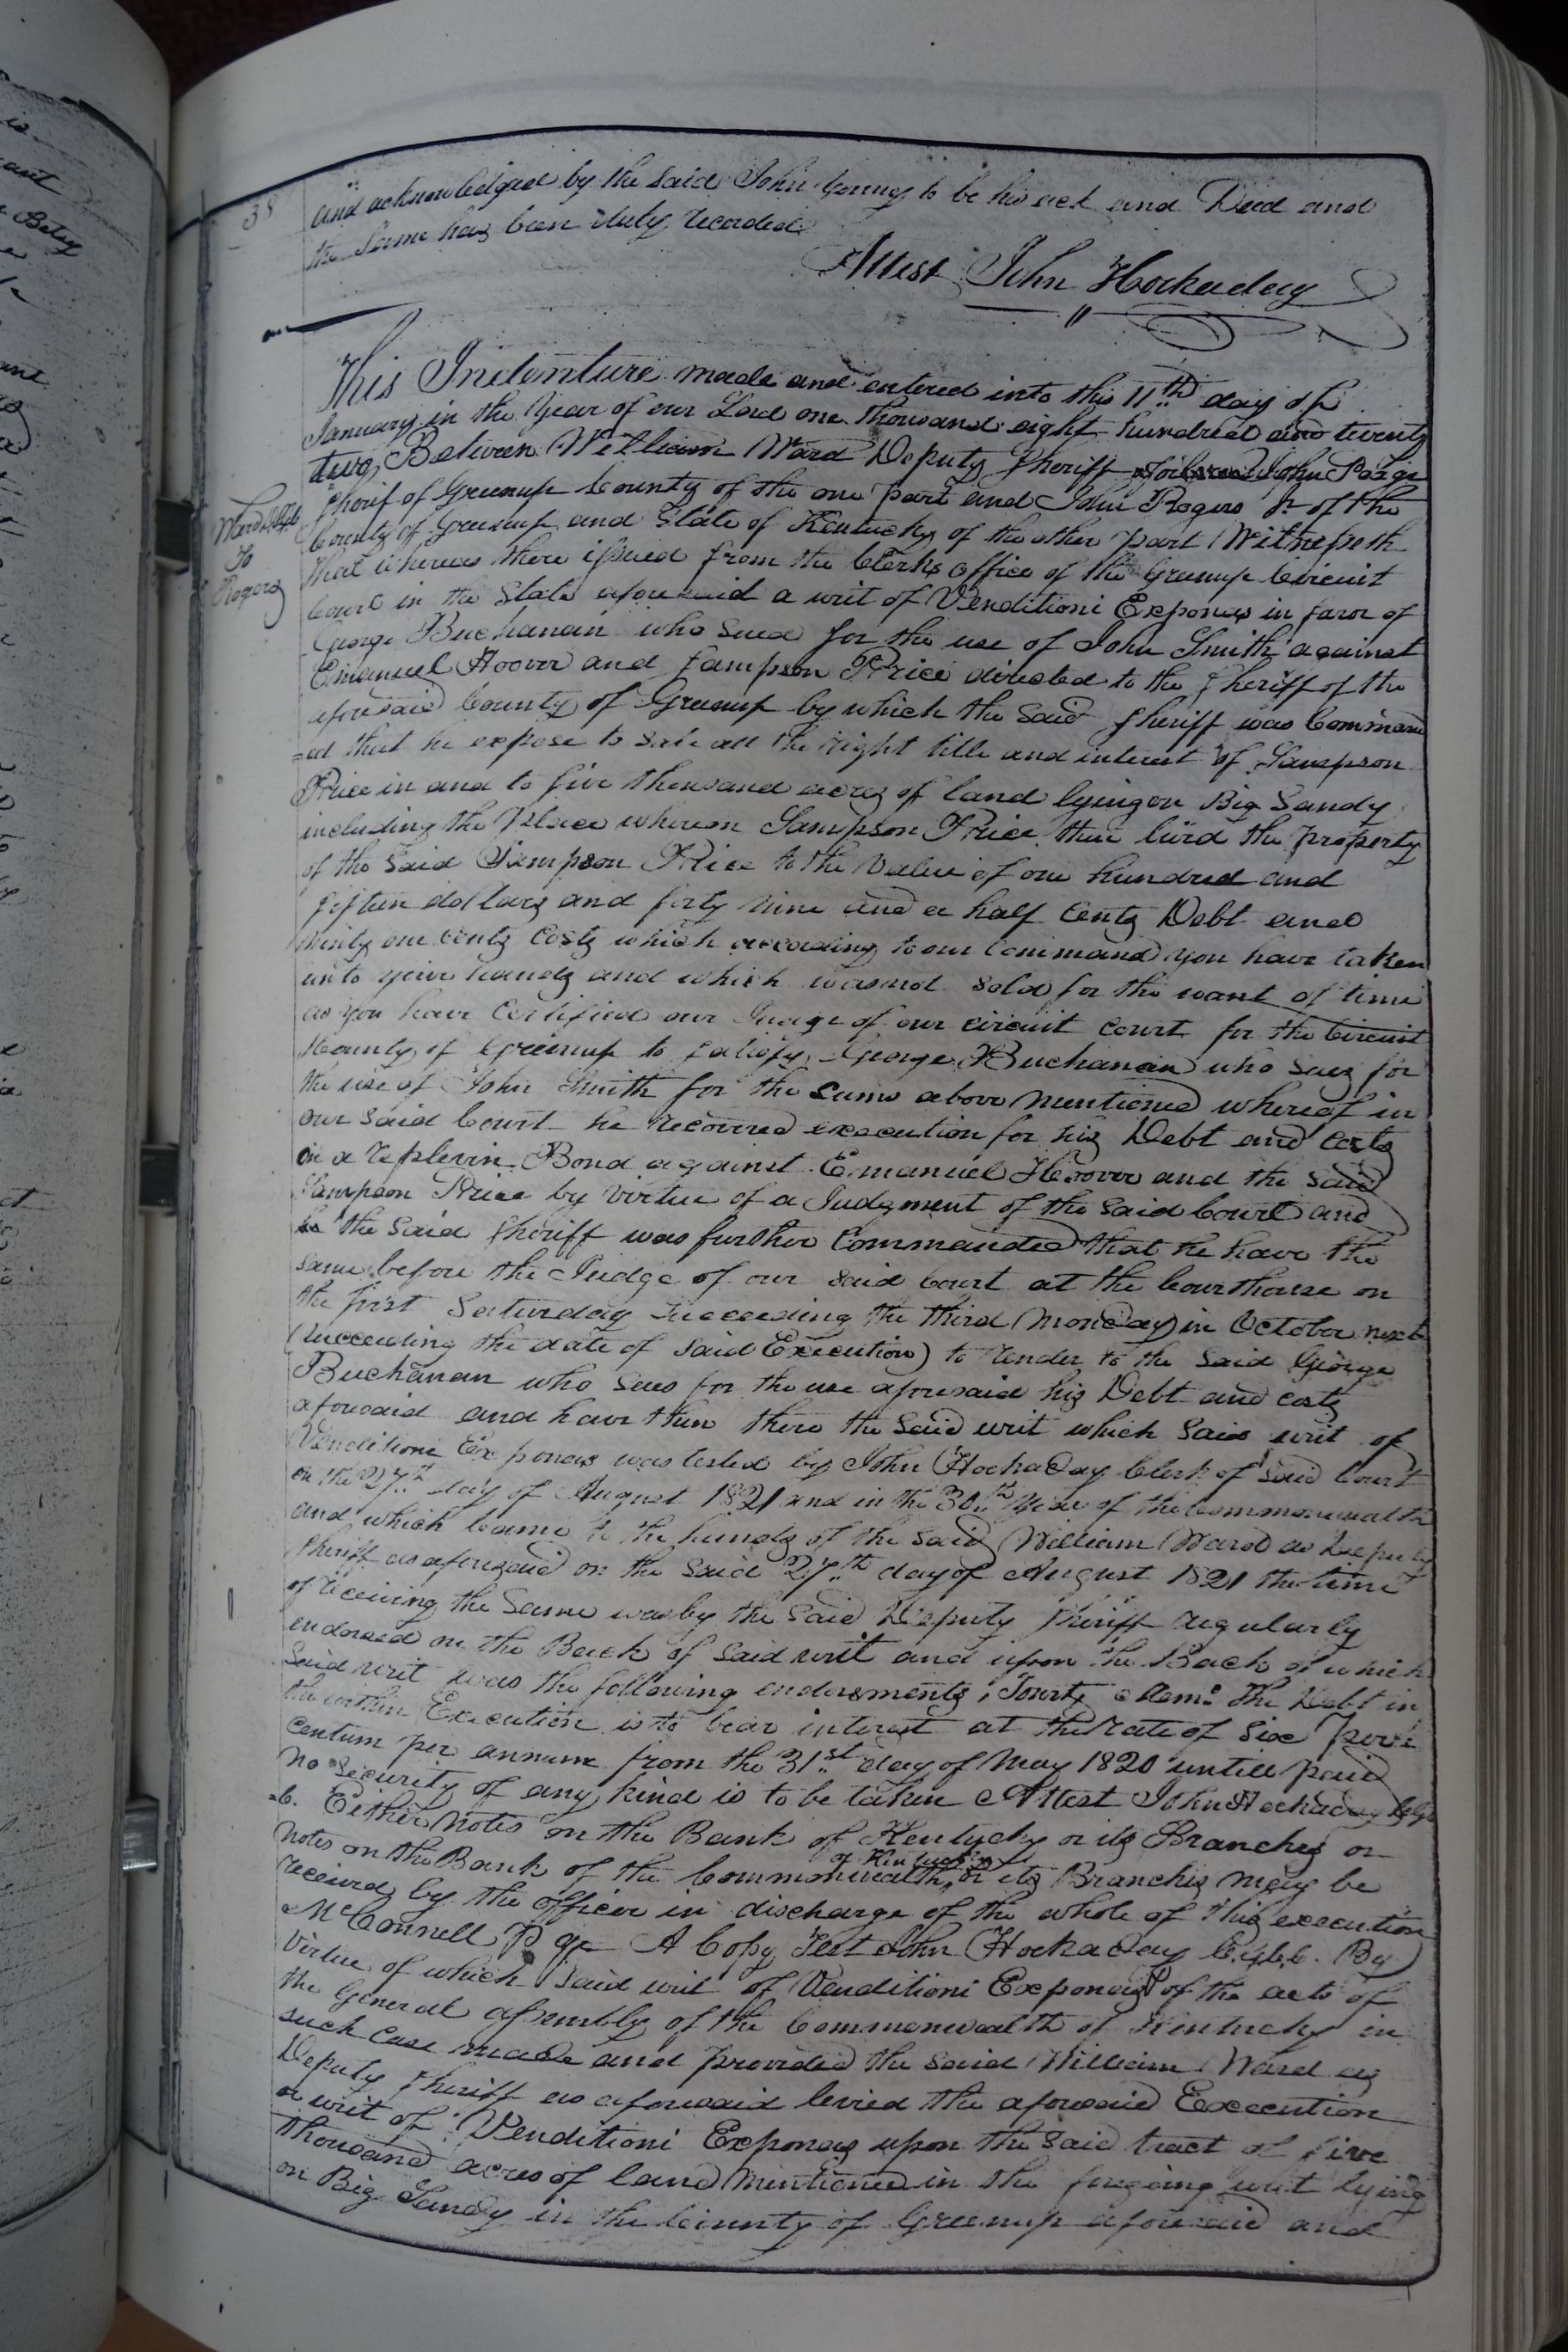 38
and acknowledged by the said John Young to be his act and Deed and
the same has been duly recorded
Attest John Hockaday
Ward
To
Rogers
This Indenture made and entered into this 11th day of
January in the Year of our Lord one thousand eight hundred and twenty
two Between William Ward Deputy Sheriff John
Sherif of Greenup County of the one part and John Rogers Jr of the
County of Greenup and State of Kentucky of the other part Witnesseth
that whereas there issued from the Clerks office of the Greenup Circuit
Court in the State aforesaid a writ of Venditioni Exponas in favor of
George Buchanan who sued for the use of John Smith against
Emanuel Hoover and Sampson Price directed to the Sheriff of the
aforesaid County of Greenup by which the said Sheriff was Command
=ed that he expose to sale all the right title and interest of Sampson
Price in and to five thousand acres of land lying on Big Sandy
including the Place whereon Sampson Price then lived the property
of the said Sampson Price to the value of one hundred and
fifteen dollars and forty nine and a half Cents Debt and
ninty one cents Costs which according to our Command you have taken
into your hands and which was not sold for the want of time
as you have Certified our Judge of our circuit court for the Circuit
County of Greenup to satisfy George Buchanan who sues for
the use of John Smith for the sums above mentioned whereof in
our said Court he recovered execution for his Debt and costs
on a replevin Bond against Emanuel Hoover and the said
Sampson Price by virtue of a Judgment of the said Court and
the said Sheriff was further Commanded that he have the
same before the Judge of our said Court at the Courthouse on
the first Saturday succeeding the third Monday in October next
(succeeding the date of said Execution) to render to the said George
Buchanan who sues for the use aforesaid his Debt and costs
aforesaid and have then there the said writ which said writ of
Venditioni Exponas was tested by John Hockaday Clerk of said Court
on the 27th day of August 1821 and in the 30th Year of the Commonwealth
and which came to the hands of the said William Ward as Deputy
Sheriff as aforesaid on the said 27th day of August 1821 the time
of receiving the same was by the said Deputy Sheriff regularly
endorsed on the Back of said writ and upon the Back of which
said writ was the following endorsments, Towit, Memo The Debt in
the within Execution is to bear interest at the rate of six per
centum per annum from the 31st day of May 1820 untill paid
No security of any kind is to be taken Attest John Hockaday
Either Notes on the Bank of Kentucky or its Branches or
Notes on the Bank of the Commonwealth of Kentucky or its Branches may be
received by the officer in discharge of the whole of this execution
McConnell A Copy Test John Hockaday C.G.C.C. By
virtue of which said writ of Venditioni Exponas & of the acts of
the General assembly of the Commonwealth of Kentucky in
such case made and provided the said William Ward as
Deputy Sheriff as aforesaid levied the aforesaid Execution
or writ of Venditioni Exponas upon the said tract of five
thousand acres of land mentioned in the foregoing writ lying
on Big Sandy in the County of Greenup aforesaid and